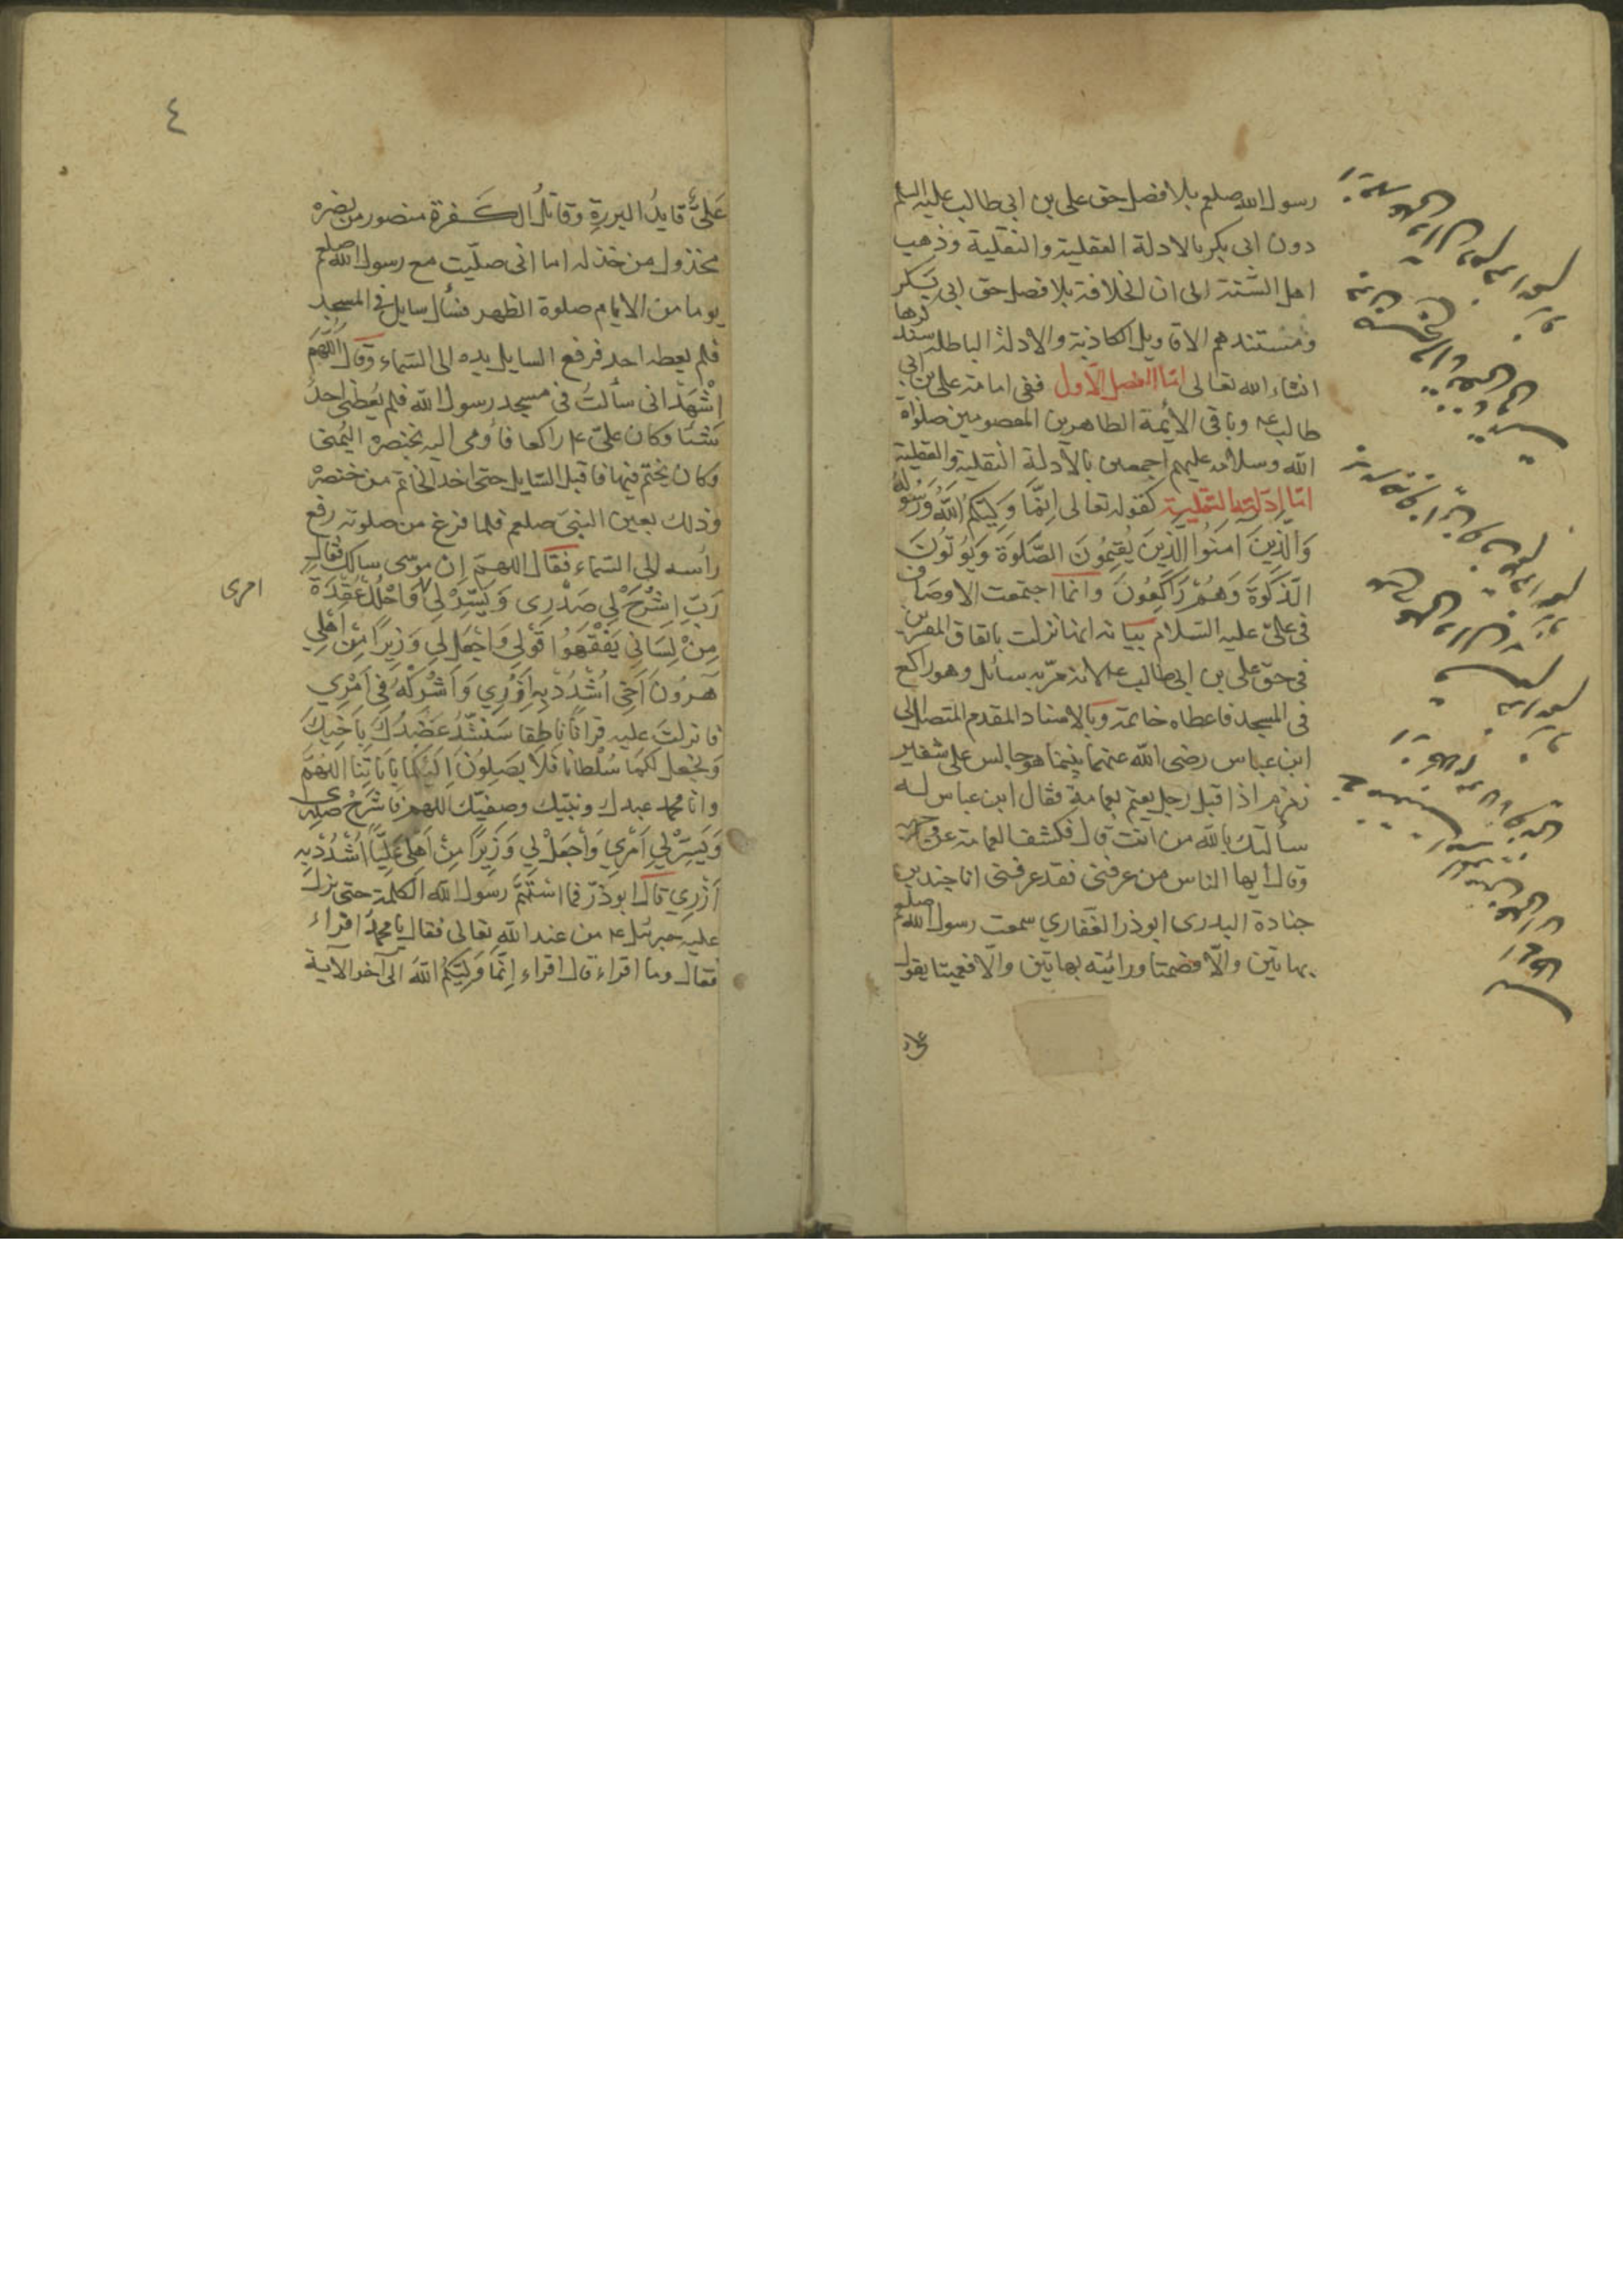 رسول الله صلعم بلا فصل حق على بن ابى طالب عليه السلم
دون ابى بكر بالادلة العقلية والنقلية وذهب
اهل السّنة الى ان الخلافة بلا فصل حق ابى بكر
ومستندهم الاقاويل الكاذبة والادلة الباطلة سنذكرها
انشاء الله تعالى امّا الفصل الاول ففى امامة على بن ابى
طالب عم وباقى الأئمة الطاهرين المعصومين صلواة
الله وسلامه عليهم اجمعين بالأدلة النقلية والعقلية
امّا ادلّة النقلية كقوله تعالى اِنَّمَا وَلِيُّكُمُ اللهُ وَرَسُولُهُ
وَالَّذِينَ اٰمَنُوا الَّذِينَ يُقِيمُونَ الصَّلٰوةَ وَيُؤْتُونَ
الزَّكٰوةَ وَهُمْ رَاكِعُونَ وانما اجتمعت الاوصاف
فى علىّ عليه السّلام بيانه انما نزلت باتفاق المفسرين
فى حقّ على بن ابى طالب عم لانه مرّ به سائل وهو راكع
فى المسجد فاعطاه خاتمه وبالاسناد المقدم المتصل الى
ابن عباس رضى الله عنهما بينما هو جالس على شفير
زمزم اذا قبل رجل يعتم بعمامة فقال ابن عباس له
سألتك بالله من انت قال فكشف العمامة عن وجهه
وقال أيها الناس من عرفنى فقد عرفنى انا جندب بن
جنادة البدرى ابوذر الغفاري سمعت رسول الله صلعم
بهاتين والّا فصمتا ورائيته بهاتين والّا فعميتا يقول
علىّ
٤
عَلىٌّ قايدُ البررةِ وقاتلُ الكفرة منصور من نصره
مخذول من خذله اما انى صلّيت مع رسول الله صلعم
يوما من الايام صلوة الظهر فسأل سايل فى المسجد
فلم يعطه احد فرفع السايل يده الى السّماء وقال اللّٰهُمَّ
اِشْهَدْ انى سألتُ فى مسجد رسول الله فلم يُعطنى احدٌ
شيئا وكان علىّ عم راكعا فأومى اليه بخنصره اليُمنى
وكان يختّم فيها فاقبل السّايل حتى اخذ الخاتم من خنصره
وذلك بعين النبىّ صلعم فلما فرغ من صلوته رفع
رأسه الى السّماء فقال اللهمّ ان موسى سالك فقال
رَبِّ اشْرَحْ لِي صَدْرِى وَيَسِّرْ لِي وَاحْلُلْ عُقْدَةً
امرى
مِنْ لِسَانِي يَفْقَهُوا قَوْلِي وَاجْعَلْ لِي وَزِيرًا مِنْ اَهْلِي
هٰرُونَ اَخِى اُشْدُدْ بِهِ اَزْرِي وَاَشْرِكْهُ فِى اَمْرِي
فانزلتَ عليه قرانًا ناطقا سَنَشُدُّ عَضُدَكَ بِاَخِيكَ
وَنَجْعَلُ لَكُمَا سُلْطَانًا فَلَا يَصِلُونَ اِلَيْكُمَا بِاٰيَاتِنَا اللهمّ
وانا محمد عبدك ونبيّك وصفيّك اللهم فاشْرَحْ صدرى
وَيَسِّرْ لِي اَمْرِي وَاجْعَلْ لِي وَزِيرًا مِنْ اَهْلِى عَلِيًّا اُشْدُدْ بِهِ
اَزْرِي قال ابوذرّ فما استتمّ رسول الله الكلمة حتى نزل
عليه جبرئل عم من عند الله تعالى فقال يا محمدُ اقراء
فقال وما اقراء قال اقراء اِنَّمَا وَلِيُّكُمُ اللهُ الى آخر الآية